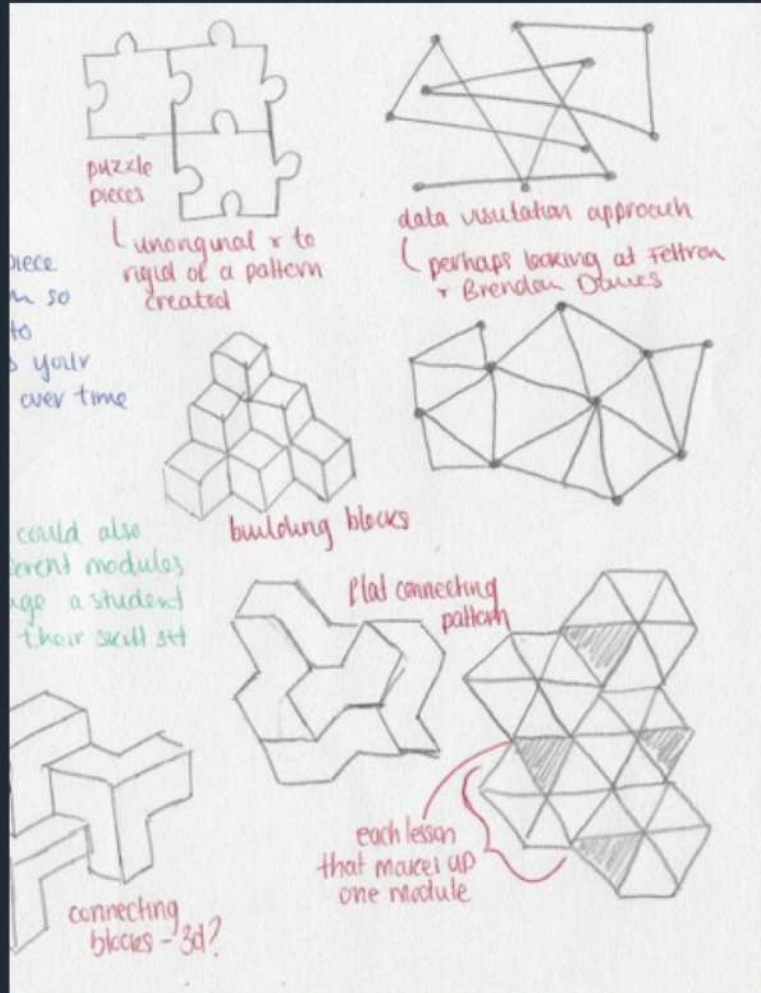 puzzle
pieces
unoriginal & to
rigid of a pattern
created
data visulation approach
perhaps looking at Feltron
& Brendan Dawes
piece
so
to
your
over time
building blocks
could also
modules
a student
their skill set
flat connecting
pattern
each lesson
that makes up
one module
connecting
blocks - 3d?